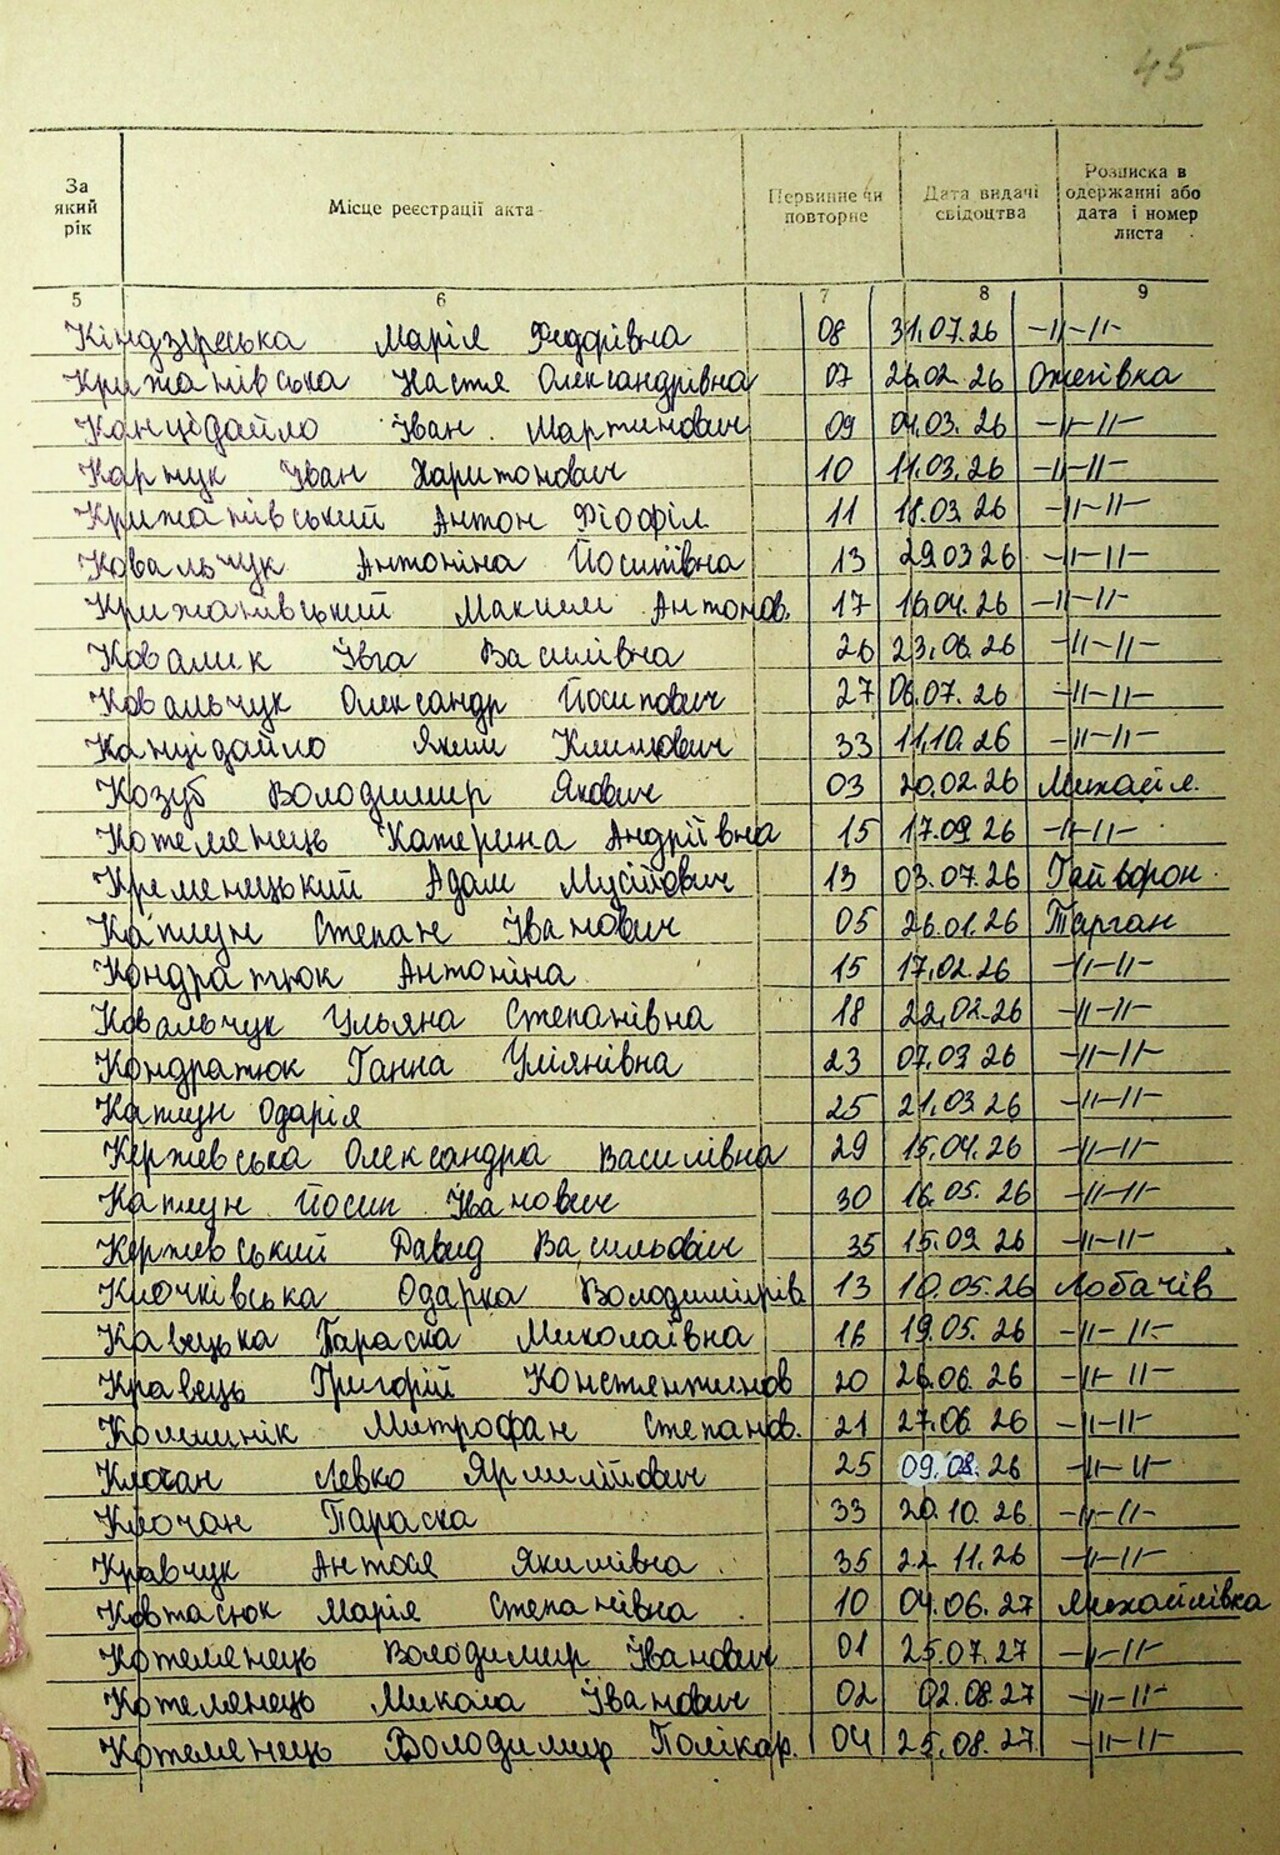 45
За який рік Місце реєстрації акта Первинне чи повторне Дата видачі свідоцтва Розписка в одержанні або дата і номер листа
5 6 7 8 9
Кіндзерська Марія Федорівна 08 31.07.26 -||-||-
Крижанівська Настя Олександрівна 07 26.02.26 Ожегівка
Канцідайло Іван Мартинович 09 04.03.26 -||-||-
Карпук Іван Харитонович 10 11.03.26 -||-||-
Крижанівський Антон Фіофіл. 11 18.03.26 -||-||-
Ковальчук Антоніна Йосипівна 13 29.03.26 -||-||-
Крижанівський Максим Антонов. 17 16.04.26 -||-||-
Ковалик Івга Василівна 26 23.06.26 -||-||-
Ковальчук Олександр Йосипович 27 06.07.26 -||-||-
Канцідайло Яким Климович 33 11.10.26 -||-||-
Козуб Володимир Якович 03 20.02.26 Михайл.
Котелянець Катерина Андріївна 15 17.09.26 -||-||-
Кременецький Адам Мусійович 13 03.07.26 Гайворон
Каплун Степан Іванович 05 26.01.26 Тарган
Кондратюк Антоніна 15 17.02.26 -||-||-
Ковальчук Ульяна Степанівна 18 22.02.26 -||-||-
Кондратюк Ганна Уліянівна 23 07.03.26 -||-||-
Каплун Одарія 25 21.03.26 -||-||-
Кержевська Олександра Василівна 29 15.04.26 -||-||-
Каплун Йосип Іванович 30 16.05.26 -||-||-
Кержевський Давид Васильович 35 15.09.26 -||-||-
Клочківська Одарка Володимирів. 13 10.05.26 Лобачів
Кавецька Параска Миколаївна 16 19.05.26 -||-||-
Кравець Григорій Констянтинов 20 26.06.26 -||-||-
Колішнік Митрофан Степанов. 21 27.06.26 -||-||-
Клочан Левко Ярмилійович 25 09.08.26 -||-||-
Клочан Параска 33 20.10.26 -||-||-
Кравчук Антося Якимівна 35 22.11.26 -||-||-
Ковтасюк Марія Степанівна 10 04.06.27 Михайлівка
Котелянець Володимир Іванович 01 25.07.27 -||-||-
Котелянець Микола Іванович 02 02.08.27 -||-||-
Котелянець Володимир Полікар. 04 25.08.27 -||-||-